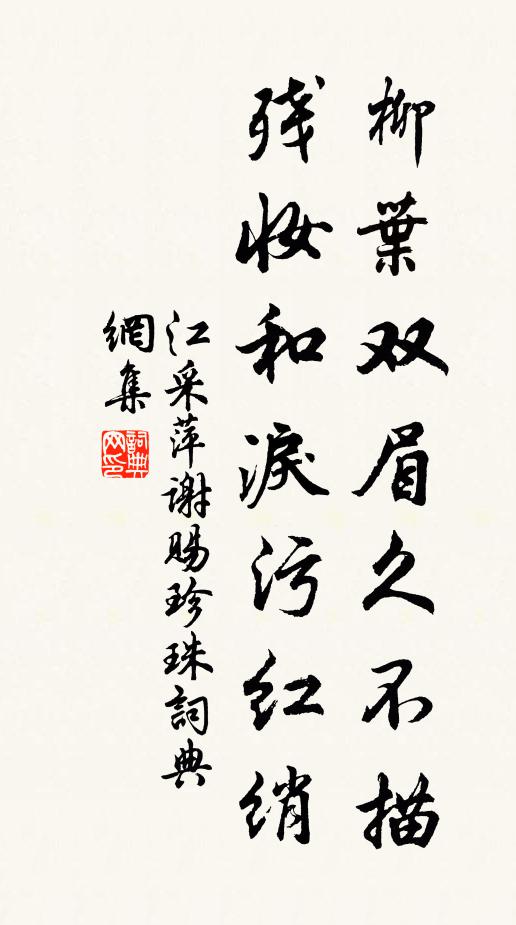 柳葉双眉久不描
残妝和淚污红绡
江采萍谢賜珍珠詞典
網集
詞典网印